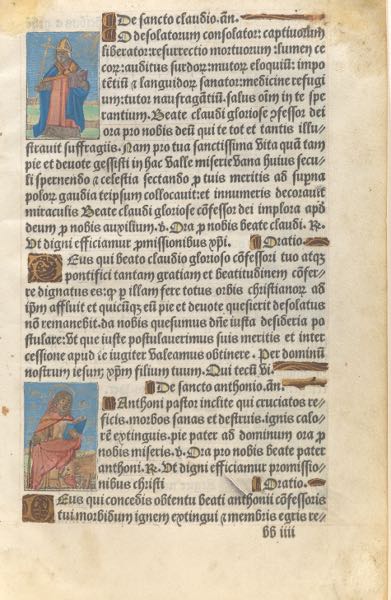 De sancto claudio. añ.
O desolatorum consolator: captiuorum
liberator: resurrectio mortuorum: lumen ce
cor̃: auditus surdor̃: mutor̃ eloquiũ: impo
tẽtiũ & languidor̃ sanator: medicine refugi
um: tutor naufragãtiũ. salus oĩm in te spe
rantium. Beate claudi gloriose cõfessor dei
ora pro nobis deũ qui te tot et tantis illu⸗
strauit suffragiis. Nam pro tua sanctissima vita quã tam
pie et deuote gessisti in hac valle miserie vana huius secu⸗
li spernendo & celestia sectando p̱ tuis meritis ad sup̱na
polor̃ gaudia teipsum collocauit: et innumeris decorauit
miraculis Beate claudi gloriose cõfessor dei implora apd̃
deum p̱ nobis auxilium. v. Ora p̱ nobis beate claudi. R.
Vt digni efficiamur p̱missionibus xp̃i. Oratio.
Deus qui beato claudio glorioso cõfessori tuo atq̃
pontifici tantam gratiam et beatitudinem cõfer⸗
re dignatus es: q̃ p̱ illam fere totus orbis christianor̃ ad
ip̃m affluit et quicũq̃ eũ pie et deuote quesierit desolatus
nõ remanebit. da nobis quesumus dñe iusta desideria po
stulare: Vt que iuste postulauerimus suis meritis et inter⸗
cessione apud te iugiter valeamus obtinere. Per dominũ
nostrum iesum xp̃m filium tuum. Qui tecũ vi.
De sancto anthonio. añ.
Anthoni pastor inclite qui cruciatos re⸗
ficis. morbos sanas et destruis. ignis calo⸗
rẽ extinguis. pie pater ad dominum ora p̱
nobis miseris. v. Ora pro nobis beate pater
anthoni. R. Vt digni efficiamur promissio⸗
nibus christi Oratio.
Deus qui concedis obtentu beati anthonii cõfessoris
tui morbidum ignem extingui & membris egris re⸗
bb iiii